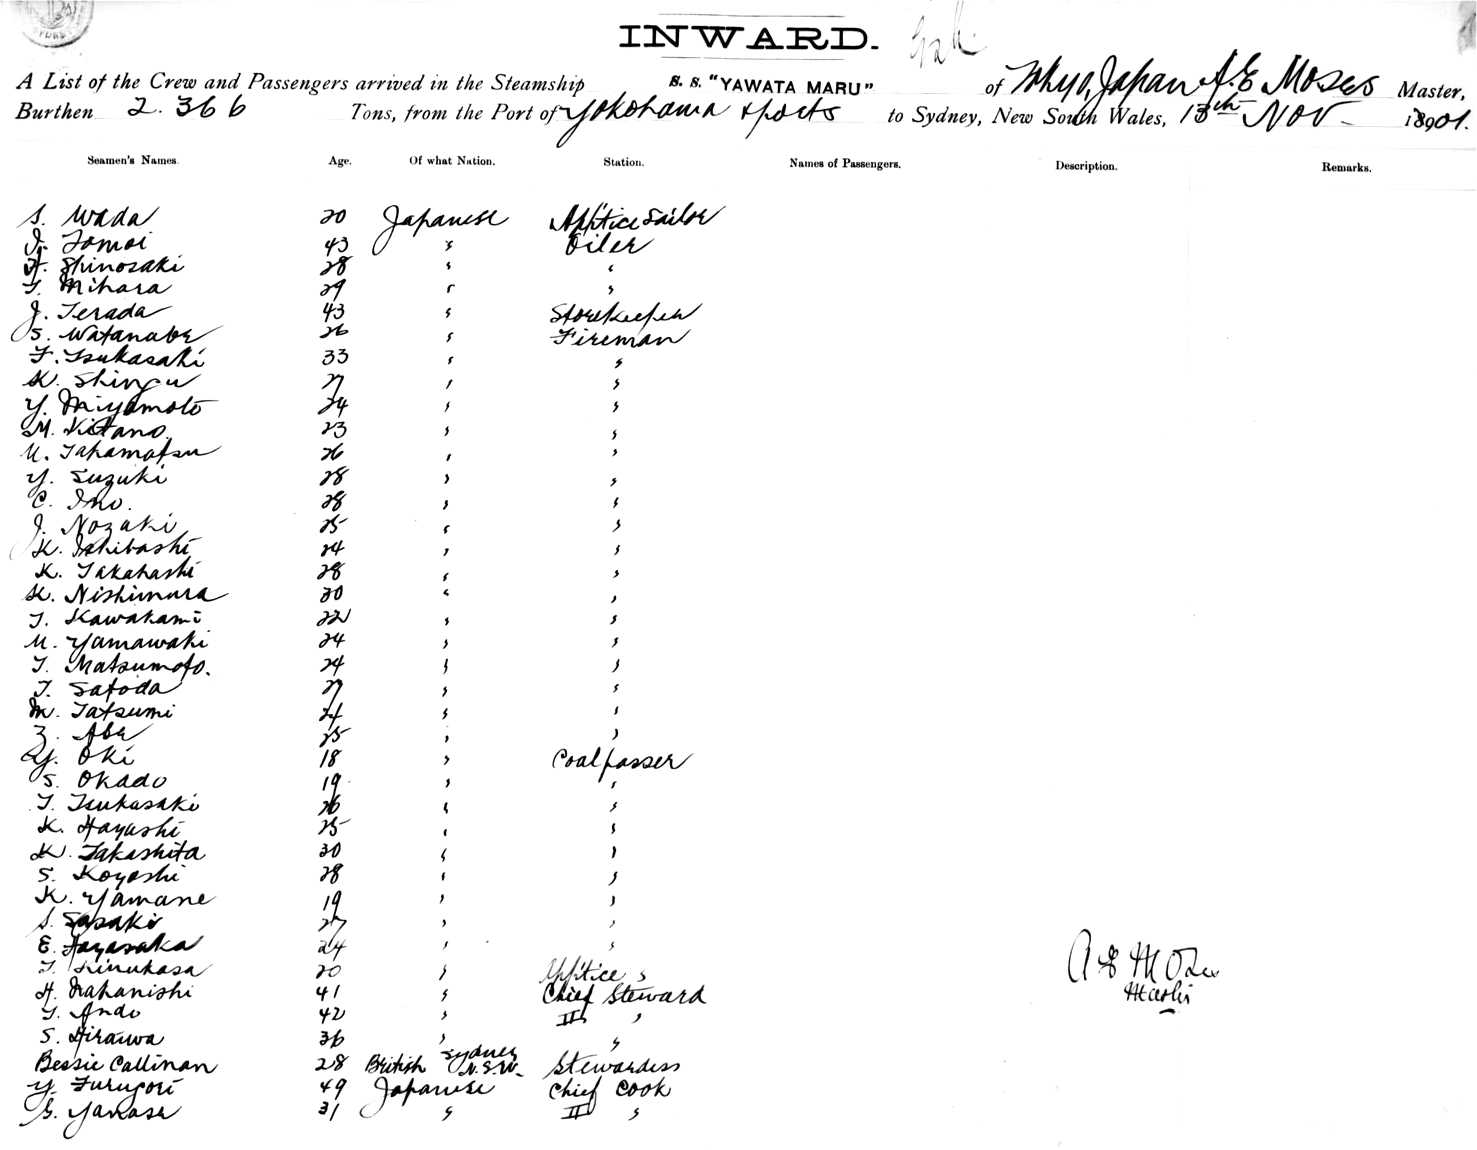 INWARD.
A List of the Crew and Passengers arrived in the Steamship S. S. "YAWATA MARU" of Tokyo, Japan A. E Moses Master,
Burthen 2.366 Tons, from the Port of Yokohama & ports to Sydney, New South Wales, 13th Nov 1901.
Seamen's Names. Age. Of what Nation. Station. Names of Passengers. Description. Remarks.
S. Wada 20 Japanese App'tice Sailor
J. Tomoi 43 " Oiler
H. Shinozaki 28 " "
T. Mihara 29 " "
J. Terada 43 " Storekeeper
S. Watanabe 26 " Fireman
F. Tsukasaki 33 " "
K. Shingu 27 " "
Y. Miyamoto 24 " "
M. Kitano 23 " "
U. Takamatsu 26 " "
Y. Suzuki 28 " "
C. Ino. 28 " "
J. Nozaki 25 " "
K. Ishibashi 24 " "
K. Takahashi 28 " "
K. Nishimura 30 " "
T. Kawakami 22 " "
U. Yamawaki 24 " "
T. Matsumoto. 24 " "
T. Satoda 27 " "
M. Tatsumi 24 " "
Z. Abe 25 " "
Y. Oki 18 " Coalpasser
S. Okado 19 " "
T. Tsukasaki 26 " "
K. Hayashi 25 " "
K. Takashita 30 " "
S. Koyoshi 28 " "
K. Yamane 19 " "
S. Sasaki 27 " "
E. Hayasaka 24 " "
T. Kinukasa 20 " App'tice "
H. Nakanishi 41 " Chief Steward
Y. Ando 42 " II "
S. Hiraiwa 36 " "
Bessie Callinan 28 British Sydney N.S.W. Stewardess
Y. Furugori 49 Japanese Chief Cook
G. Yanase 31 " II "
A E Moses
Master